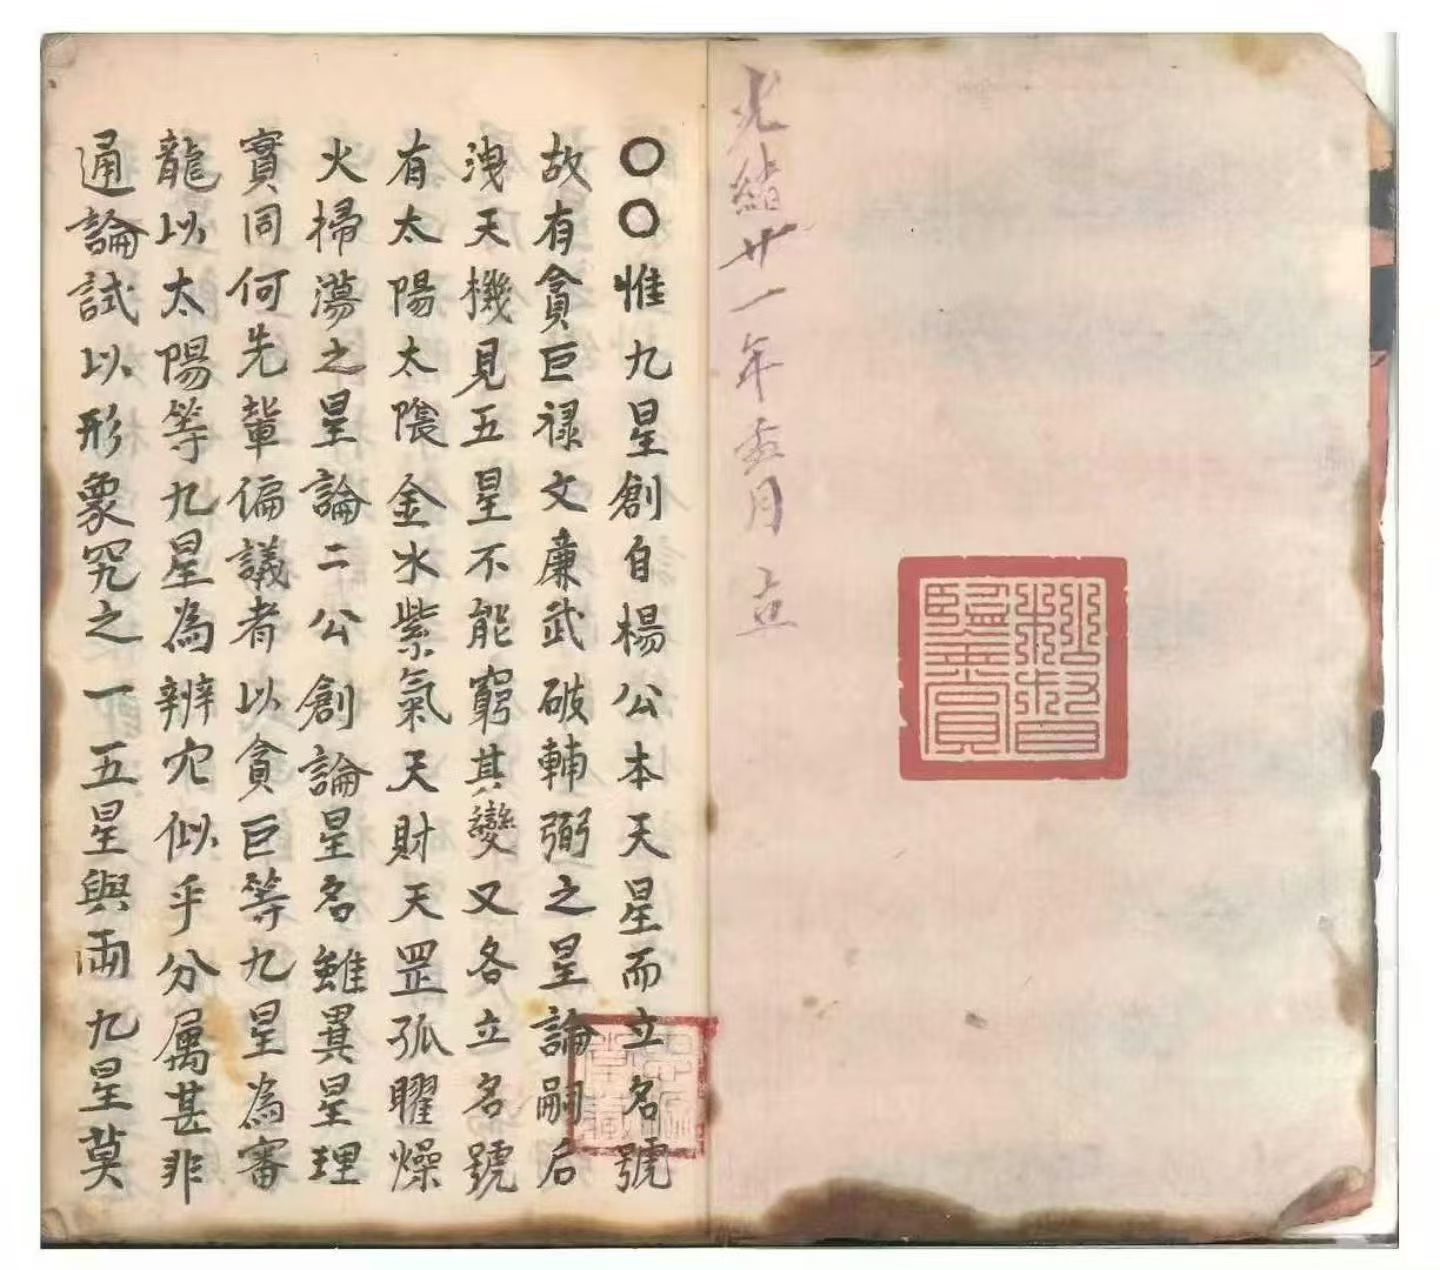 光緒廿一年五月立
〇〇惟九星創自楊公本天星而立名號
故有貪巨祿文廉武破輔弼之星論嗣后
洩天機見五星不能窮其變又各立名號
有太陽太陰金水紫氣天財天罡孤曜燥
火掃蕩之星論二公創論星名雖異星理
實同何先輩偏議者以貪巨等九星為審
龍以太陽等九星為辨穴似乎分屬甚非
通論試以形象究之一五星與兩九星莫